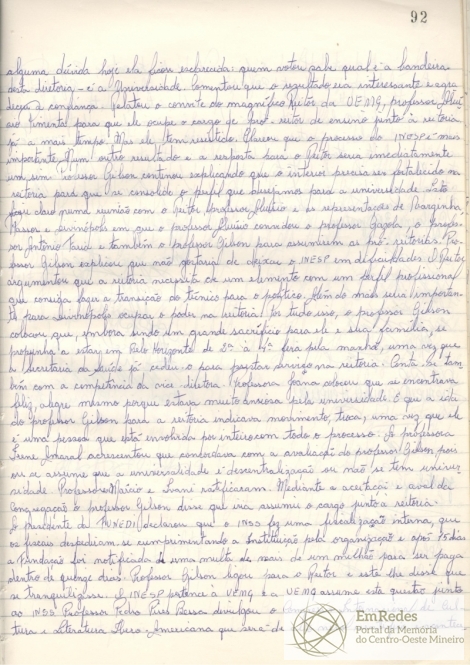 92
alguma dúvida hoje ela ficou esclarecida: quem votou sabe qual é a bandeira
desta diretoria - é a Universidade. Comentou que o resultado era interessante e agra
deceu a confiança. Relatou o convite do magnífico Reitor da UEMG, professor Aluí
sio Pimenta para que ele ocupe o cargo de pró-reitor de ensino junto à reitoria
já a mais tempo. Mas ele tem resistido. Clareou que o processo do INESP é mais
importante. Num outro resultado e a resposta para o Reitor seria imediatamente
um sim. Professor Gilson continuou explicando que o interior precisa ser fortalecido na
reitoria para que se consolide o perfil que desejamos para a universidade. Isto
ficou claro numa reunião com o Reitor professor Aluísio e as representações de Varginha,
Passos e Divinópolis em que o professor Aluísio convidou o professor Gazola, o profes-
sor Antônio Faria e também o professor Gilson para assumirem as pró-reitorias. Pro-
fessor Gilson explicou que não gostaria de deixar o INESP em dificuldades. O Reitor
argumentou que a reitoria necessita de um elemento com um perfil profissional
que consiga fazer a transição do técnico para o político. Além do mais seria importan-
te para Divinópolis ocupar o poder na reitoria. Por tudo isso, o professor Gilson
colocou que, embora sendo um grande sacrifício para ele e sua família, se
propunha a estar em Belo Horizonte de 3ª à 5ª feira pela manhã, uma vez que
a Secretaria da Saúde já cedeu-o para prestar serviço na reitoria. Conta-se tam
bém com a competência da vice-diretora. Professora Joana colocou que se encontrava
feliz, alegre mesmo porque estava muito ansiosa pela universidade. E que a ida
do professor Gilson para a reitoria indicava movimento, troca, uma vez que ele
é uma pessoa que está envolvida por inteiro com todo o processo. A professora
Irene Amaral acrescentou que concordava com a avaliação do professor Gilson pois
ou se assume que a universalidade é descentralização ou não se tem univer
sidade. Professores Márcio e Ivani ratificaram. Mediante a aceitação e aval da
Congregação o professor Gilson disse que iria assumir o cargo junto à reitoria.
O Presidente da FUNEDI declarou que o INSS fez uma fiscalização interna, que
os fiscais despediram-se cumprimentando a Instituição pela organização e após 15 dias
a Fundação foi notificada de uma multa de mais de um milhão para ser paga
dentro de quinze dias. Professor Gilson ligou para o Reitor e este lhe disse que
se tranquilizasse. O INESP pertence à UEMG e a UEMG assume esta questão junto
ao INSS. Professor Pedro Pires Bessa divulgou o
tura e Literatura Ibero Americana que será de
EmRedes
Portal da Memória
do Centro-Oeste Mineiro